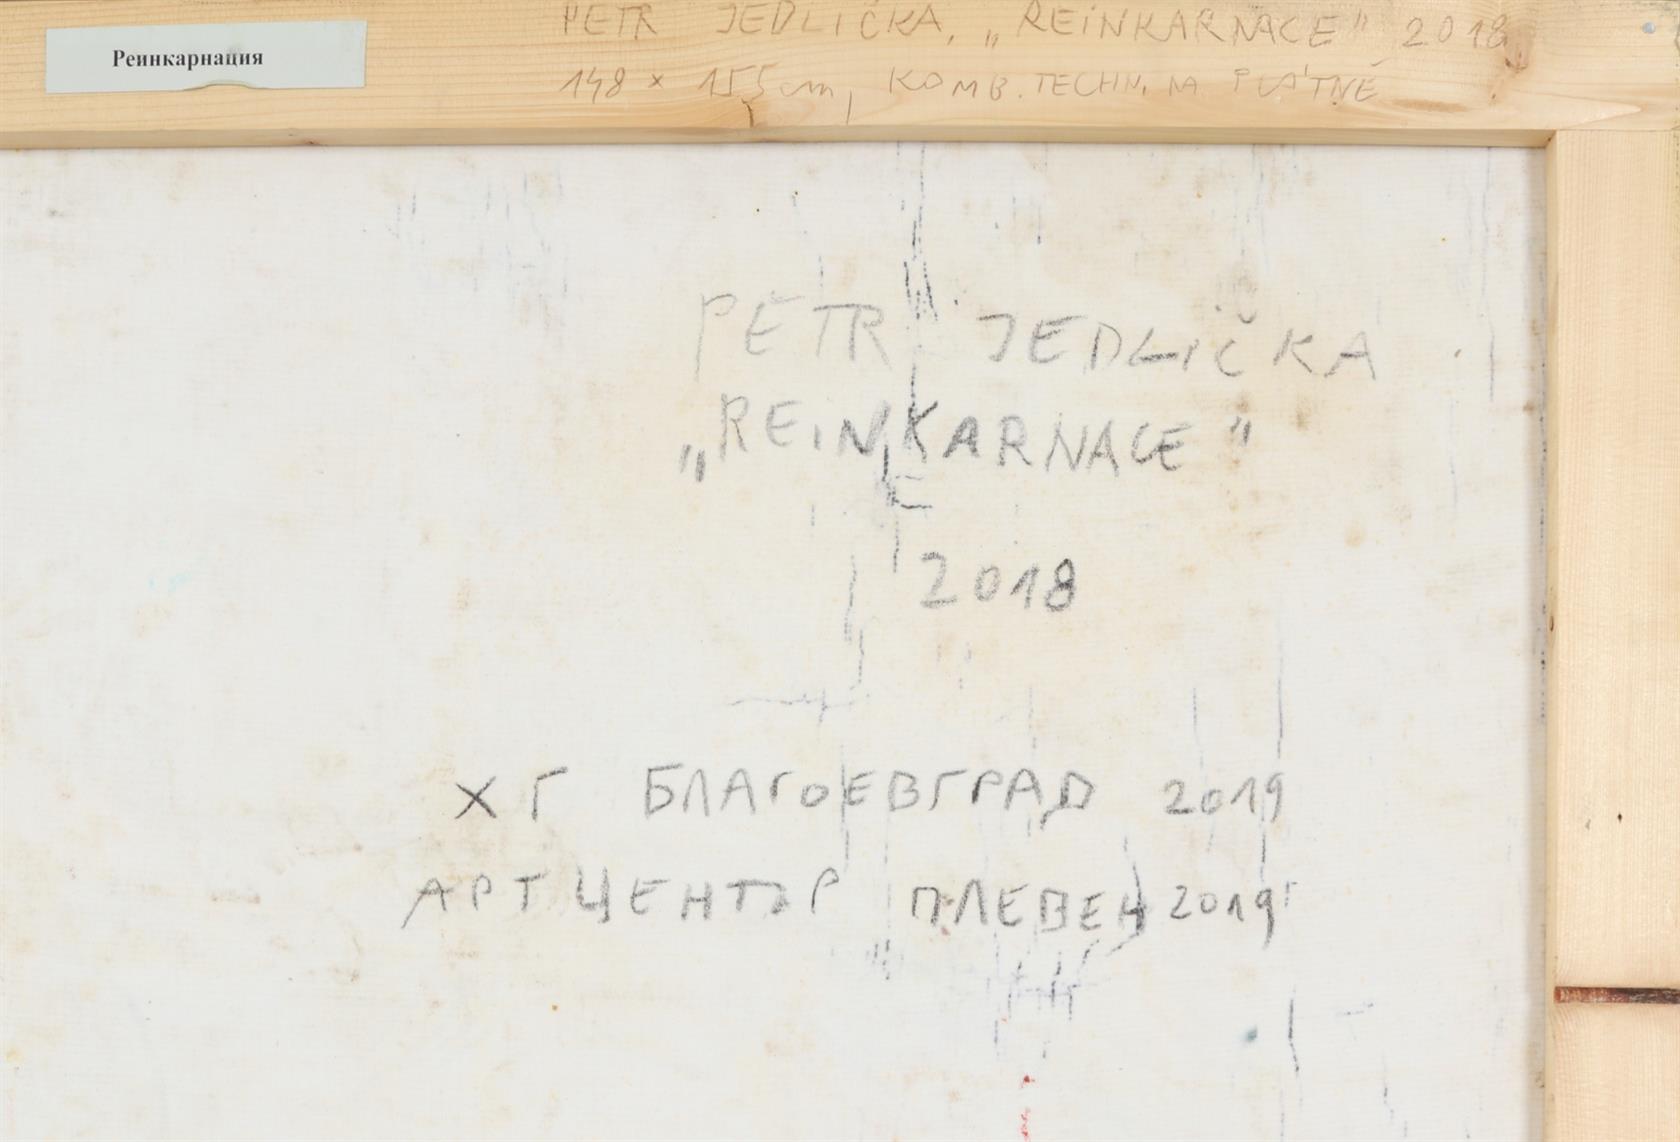 Реинкарнация
PETR JEDLIČKA, „REINKARNACE" 2018
148 × 155 cm, KOMB. TECHN. NA PLÁTNĚ
PETR JEDLIČKA
„REINKARNACE"
2018
ХГ БЛАГОЕВГРАД 2019
АРТ ЦЕНТЪР ПЛЕВЕН 2019